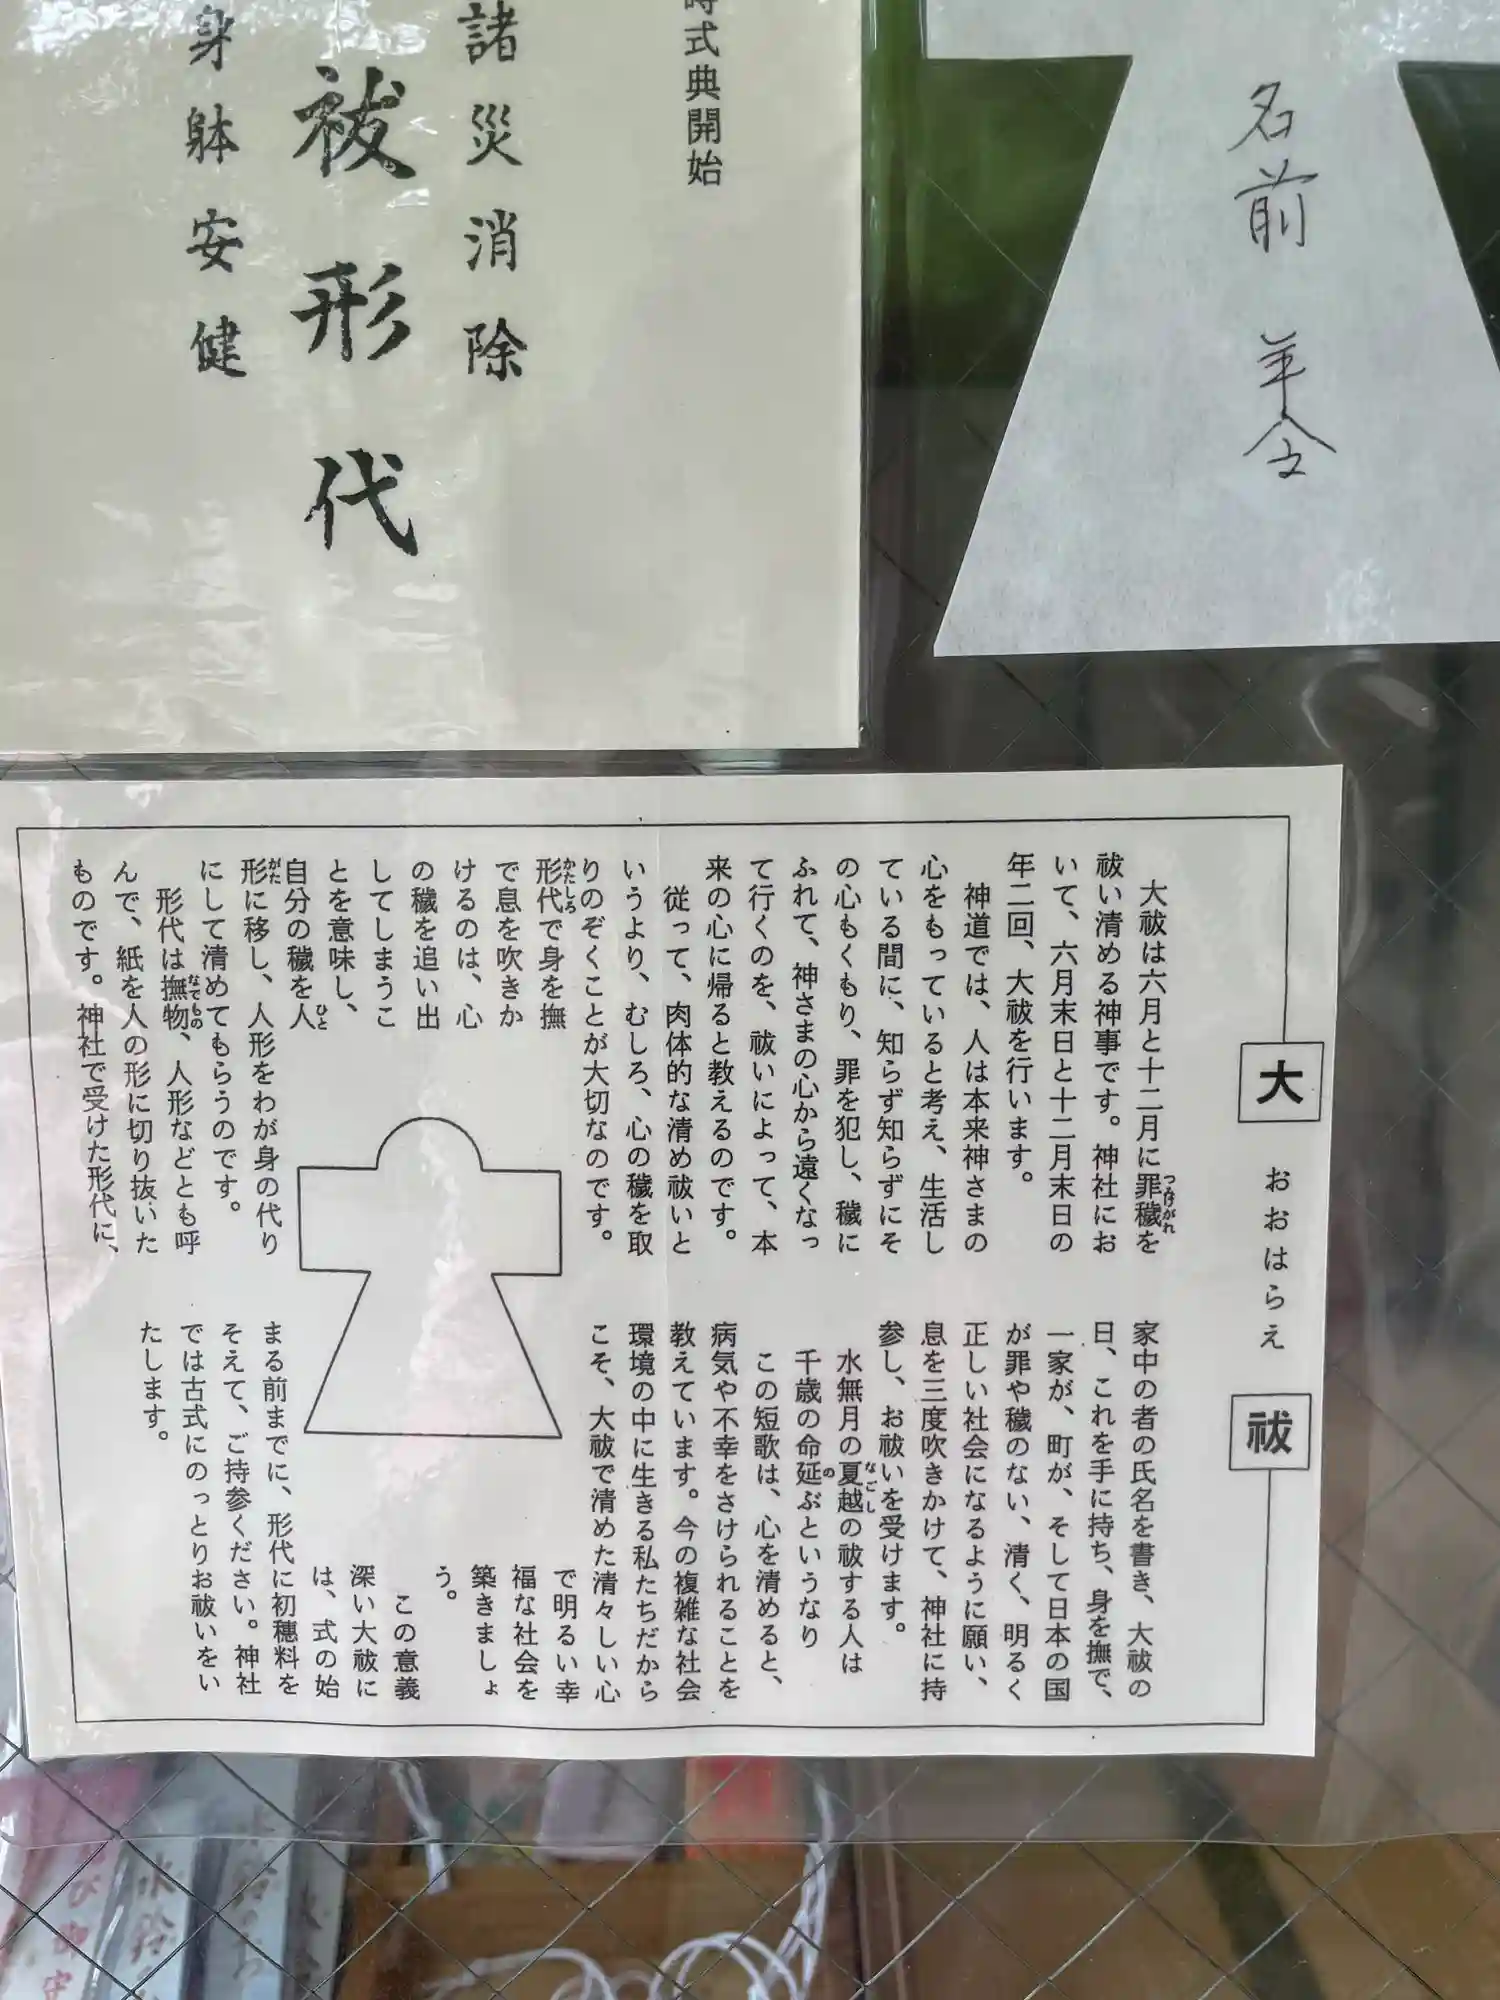 時式典開始
諸災消除
祓形代
身躰安健
名前 年令
大祓
おおはらえ
大祓は六月と十二月に罪穢を
つみけがれ
祓い清める神事です。神社にお
いて、六月末日と十二月末日の
年二回、大祓を行います。
神道では、人は本来神さまの
心をもっていると考え、生活し
ている間に、知らず知らずにそ
の心もくもり、罪を犯し、穢に
ふれて、神さまの心から遠くなっ
て行くのを、祓いによって、本
来の心に帰ると教えるのです。
従って、肉体的な清め祓いと
いうより、むしろ、心の穢を取
りのぞくことが大切なのです。
形代で身を撫
かたしろ
で息を吹きか
けるのは、心
の穢を追い出
してしまうこ
とを意味し、
自分の穢を人
ひと
形に移し、人形をわが身の代り
がた
にして清めてもらうのです。
形代は撫物、人形などとも呼
なでもの
んで、紙を人の形に切り抜いた
ものです。神社で受けた形代に、
家中の者の氏名を書き、大祓の
日、これを手に持ち、身を撫で、
一家が、町が、そして日本の国
が罪や穢のない、清く、明るく
正しい社会になるように願い、
息を三度吹きかけて、神社に持
参し、お祓いを受けます。
水無月の夏越の祓する人は
なごし
千歳の命延ぶというなり
の
この短歌は、心を清めると、
病気や不幸をさけられることを
教えています。今の複雑な社会
環境の中に生きる私たちだから
こそ、大祓で清めた清々しい心
で明るい幸
福な社会を
築きましょ
う。
この意義
深い大祓に
は、式の始
まる前までに、形代に初穂料を
そえて、ご持参ください。神社
では古式にのっとりお祓いをい
たします。